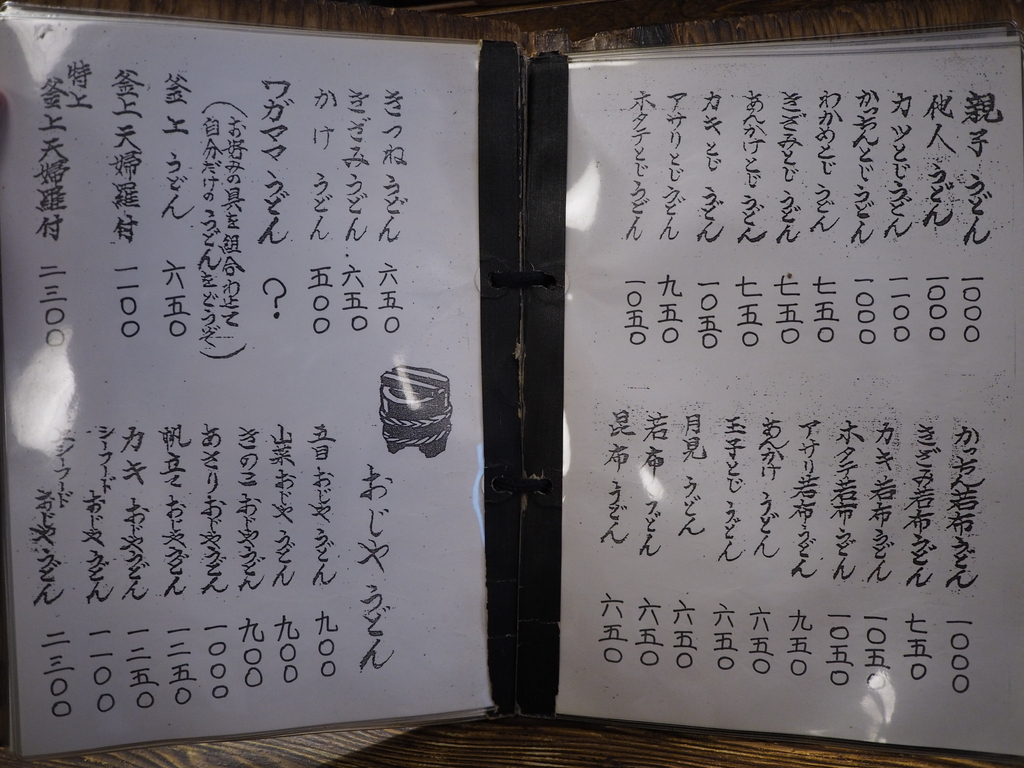 親子うどん 一〇〇〇
他人うどん 一〇〇〇
カツとじうどん 一一〇〇
かっちんとじうどん 一〇〇〇
わかめとじうどん 七五〇
きざみとじうどん 七五〇
あんかけとじうどん 七五〇
カキとじうどん 一〇五〇
アサリとじうどん 九五〇
ホタテとじうどん 一〇五〇
かっちん若布うどん 一〇〇〇
きざみ若布うどん 七五〇
カキ若布うどん 一〇五〇
ホタテ若布うどん 一〇五〇
アサリ若布うどん 九五〇
あんかけうどん 六五〇
玉子とじうどん 六五〇
月見うどん 六五〇
若布うどん 六五〇
昆布うどん 六五〇
きつねうどん 六五〇
きざみうどん 六五〇
かけうどん 五〇〇
ワガママうどん ?
(お好み具を組合わせて
自分だけのうどんをどうぞ)
釜上うどん 六五〇
釜上天婦羅付 一一〇〇
特上
釜上天婦羅付 二三〇〇
おじやうどん
五目おじやうどん 九〇〇
山菜おじやうどん 九〇〇
きのこおじやうどん 九〇〇
あさりおじやうどん 一〇〇〇
帆立ておじやうどん 一二五〇
カキおじやうどん 一二五〇
シーフードおじやうどん 一一〇〇
シーフードおじやうどん 二三〇〇